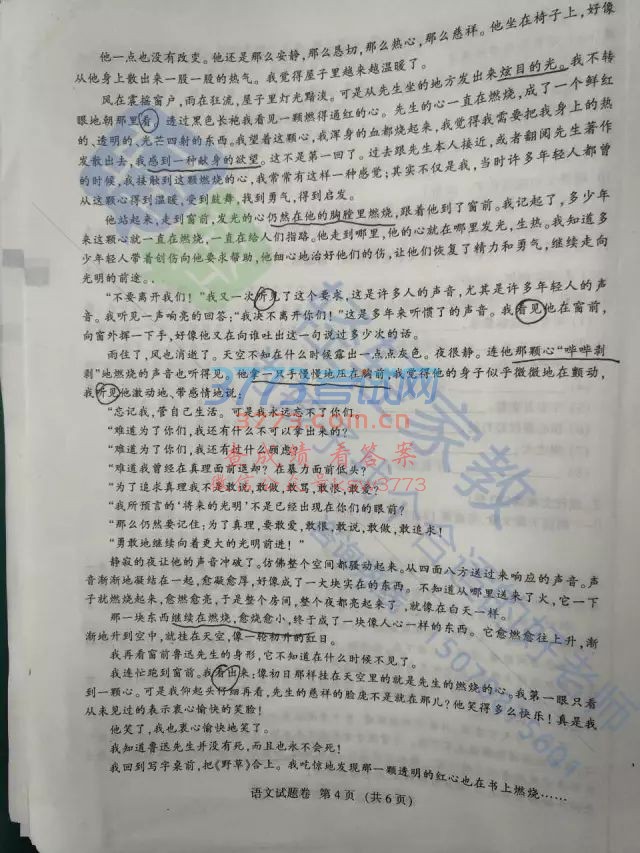 他一点也没有改变。他还是那么安静,那么恳切,那么热心,那么慈祥。他坐在椅子上,好像
从他身上散出来一股一股的热气。我觉得屋子里越来越温暖了。
风在震摇窗户,雨在狂流,屋子里灯光黯淡。可是从先生坐的地方发出来炫目的光。我不转
眼地朝那里看。透过黑色长袍我看见一颗燃得通红的心。先生的心一直在燃烧,成了一个鲜红
的、透明的、光芒四射的东西。我望着这颗心,我浑身的血都烧起来,我觉得我需要把我身上的热
发散出去,我感到一种献身的欲望。这不是第一回了。过去跟先生本人接近,或者翻阅先生著作
的时候,我接触到这颗燃烧的心,我常常有这样一种感觉;其实不仅是我,当时许多年轻人都曾
从这颗心得到温暖,受到鼓舞,找到勇气,得到启发。
他站起来,走到窗前,发光的心仍然在他的胸膛里燃烧,跟着他到了窗前。我记起了,多少年
来这颗心就一直在燃烧,一直在给人们指路。他走到哪里,他的心就在哪里发光,生热。我知道多
少年轻人带着创伤向他要求帮助,他细心地治好他们的伤,让他们恢复了精力和勇气,继续走向
光明的前途。
“不要离开我们!”我又一次听见了这个要求,这是许多人的声音,尤其是许多年轻人的声
音。我听见一声响亮的回答:“我决不离开你们!”这是多年来听惯了的声音。我看见他在窗前,
向窗外挥一下手,好像他又在向谁吐出这一句说过多少次的话。
雨住了,风也消逝了。天空不知在什么时候露出一点点灰色。夜很静。连他那颗心“哔哔剥
剥”地燃烧的声音也听得见。他拿一只手慢慢地压在胸前,我觉得他的身子似乎微微地在颤动,
我听见他激动地、带感情地说:
“忘记我,管自己生活。可是我永远忘不了你们。
“难道为了你们,我还有什么不可以拿出来的?
“难道为了你们,我还有过什么顾虑?
“难道我曾经在真理面前退却?在暴力面前低头?
“为了追求真理我不是敢说,敢做,敢骂,敢恨,敢爱?
“我所预言的‘将来的光明’不是已经出现在你们的眼前?
“那么仍然要记住:为了真理,要敢爱,敢恨,敢说,敢做,敢追求!
“勇敢地继续向着更大的光明前进!”
静寂的夜让他的声音冲破了。仿佛整个空间都骚动起来。从四面八方送过来响应的声音。声
音渐渐地凝结在一起,愈凝愈厚,好像成了一大块实在的东西。不知道从哪里送来了火,它一下
子就燃烧起来,愈燃愈亮,于是整个房间,整个夜都亮起来了,就像在白天一样。
那一块东西继续在燃烧,愈烧愈小,终于成了一块像人心一样的东西。它愈燃愈往上升,渐
渐地升到空中,就挂在天空,像一轮初升的红日。
我再看窗前鲁迅先生的身形,它不知道在什么时候不见了。
我连忙跑到窗前。我看出来,像初日那样挂在天空里的就是先生的燃烧的心。我第一眼只看
到一颗心。可是我仰起头仔细再看,先生的慈祥的脸庞不是就在那儿?他笑得多么快乐!真是我
从未见过的表示衷心愉快的笑脸!
他笑了,我也衷心愉快地笑了。
我知道鲁迅先生并没有死,而且也永不会死!
我回到写字桌前,把《野草》合上。我吃惊地发现那一颗透明的红心也在书上燃烧……
语文试题卷 第4页 (共6页)
3773考试网
3773.com.cn
查成绩 看答案